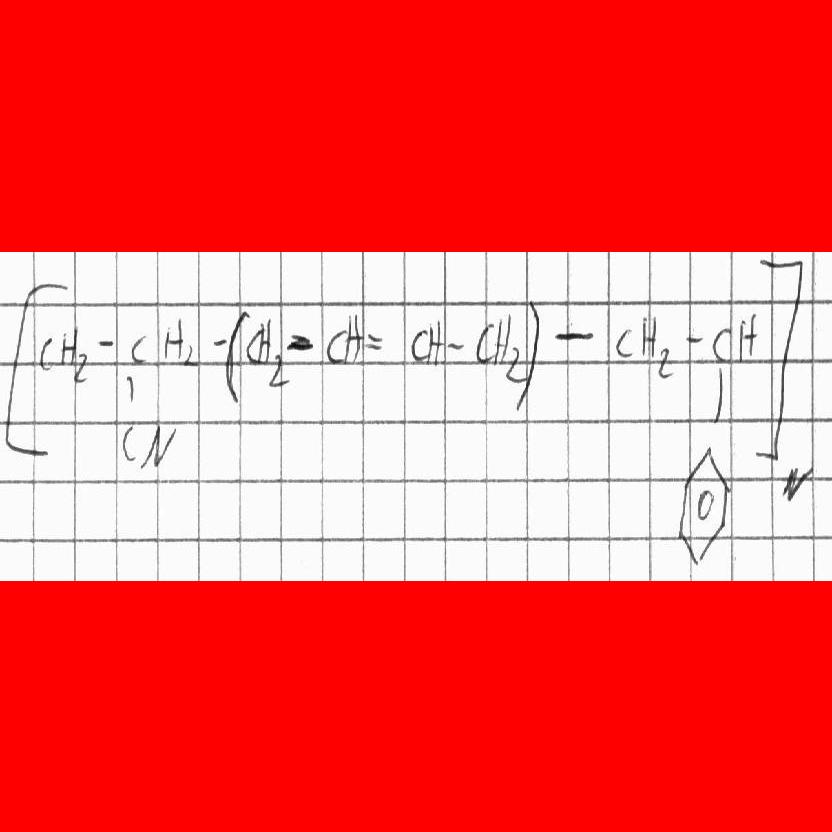 [CH₂-CH₂-(CH₂-CH=CH-CH₂)-CH₂-CH]N
CN